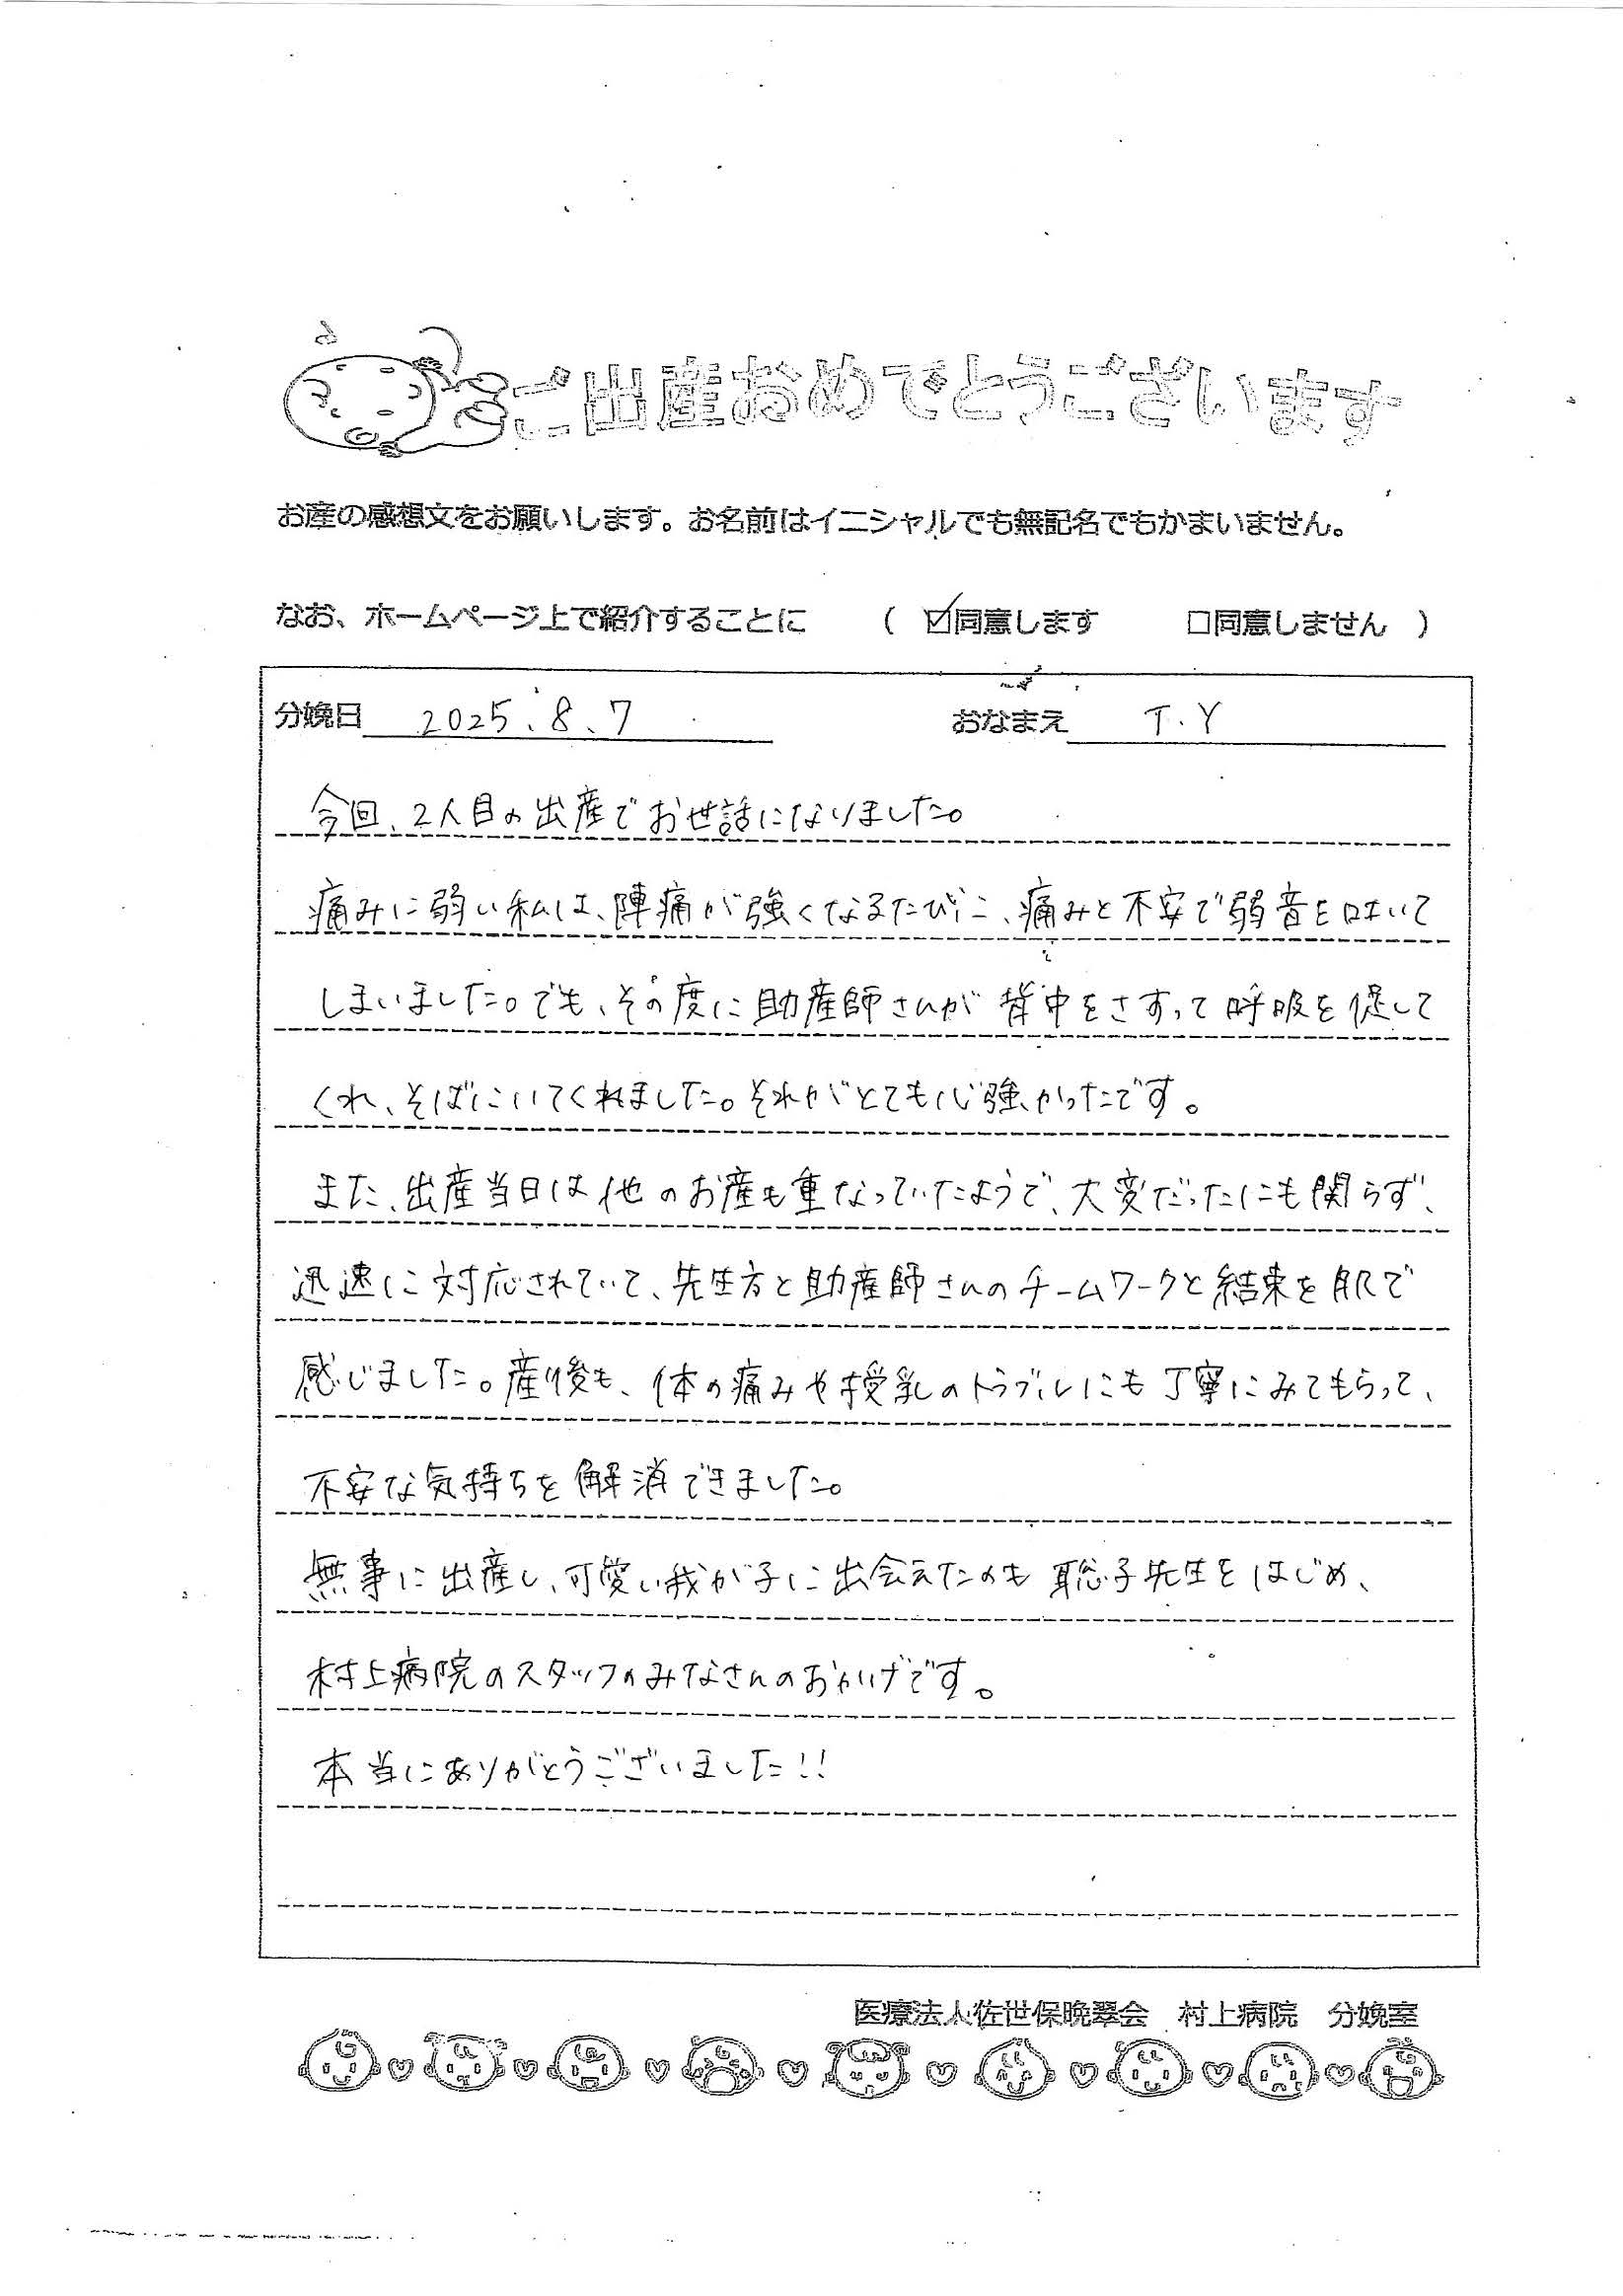 ご出産おめでとうございます
お産の感想文をお願いします。お名前はイニシャルでも無記名でもかまいません。
なお、ホームページ上で紹介することに ( ☑同意します □同意しません )
分娩日 2025.8.7 おなまえ T.Y
今回、2人目の出産でお世話になりました。
痛みに弱い私は、陣痛が強くなるたびに、痛みと不安で弱音を吐いて
しまいました。でも、その度に助産師さんが背中をさすって呼吸を促して
くれ、そばにいてくれました。それがとても心強かったです。
また、出産当日は他のお産も重なっていたようで、大変だったにも関らず、
迅速に対応されていて、先生方と助産師さんのチームワークと結束を肌で
感じました。産後も、体の痛みや授乳のトラブルにも丁寧にみてもらって、
不安な気持ちを解消できました。
無事に出産し、可愛い我が子に出会えたのも聡子先生をはじめ、
村上病院のスタッフのみなさんのおかげです。
本当にありがとうございました!!
医療法人佐世保晩翠会 村上病院 分娩室